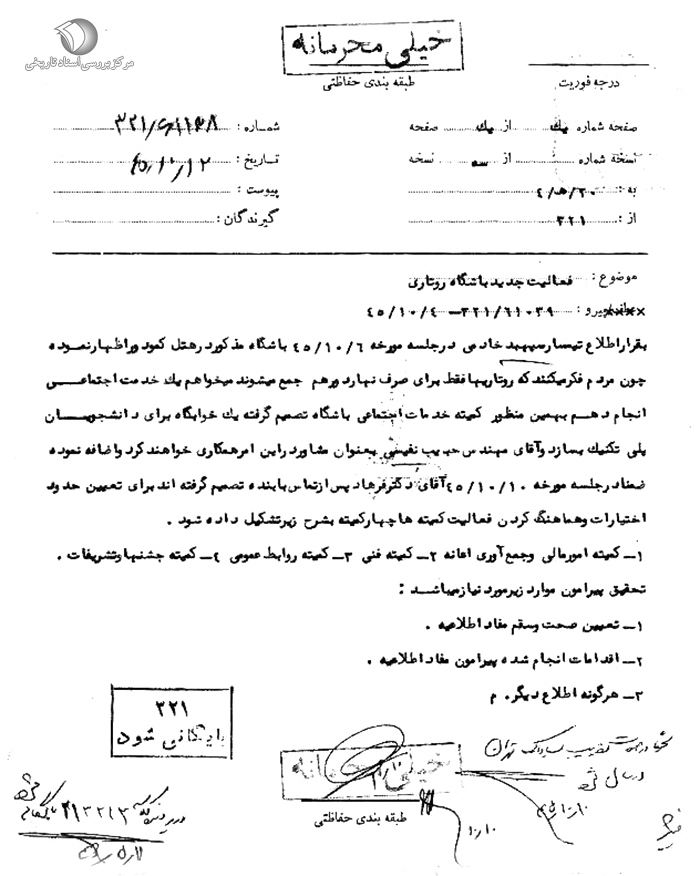 مرکز بررسی اسناد تاریخی
خیلی محرمانه
طبقه بندی حفاظتی
درجه فوریت
صفحه شماره یک از یک صفحه
شماره : ۳۲۱/۶۱۱۳۸
نسخه شماره از سه نسخه
تاریخ : ۴۵/۱۰/۱۲
به : ۲۰/ه‍/۴
پیوست :
از : ۳۲۱
گیرندگان :
موضوع : فعالیت جدید باشگاه روتاری
پیرو : ۳۲۱/۶۱۰۳۹-۴۵/۱۰/۴
بقرار اطلاع تیمسار سپهبد خادمی در جلسه مورخه ۴۵/۱۰/۶ باشگاه مذکور در هتل کمودور اظهار نموده
چون مردم فکر میکنند که روتاریها فقط برای صرف نهار دور هم جمع میشوند میخواهم یک خدمت اجتماعی
انجام دهم بهمین منظور کمیته خدمات اجتماعی باشگاه تصمیم گرفته یک خوابگاه برای دانشجویان
پلی تکنیک بسازد وآقای مهندس حبیب نفیسی بعنوان مشاور در این امر همکاری خواهند کرد و اضافه نموده
ضمنا در جلسه مورخه ۴۵/۱۰/۱۰ آقای دکتر فرهاد پس از تماس با بنده تصمیم گرفته اند برای تعیین حدود
اختیارات وهماهنگ کردن فعالیت کمیته ها چهار کمیته بشرح زیر تشکیل داده شود .
۱ـ کمیته امور مالی وجمع آوری اعانه ۲ـ کمیته فنی ۳ـ کمیته روابط عمومی ۴ـ کمیته جشنها وتشریفات .
تحقیق پیرامون موارد زیر مورد نیاز میباشد :
۱ـ تعیین صحت وسقم مفاد اطلاعیه .
۲ـ اقدامات انجام شده پیرامون مفاد اطلاعیه .
۳ـ هرگونه اطلاع دیگر. م
۳۲۱
بایگانی شود
خیلی محرمانه
طبقه بندی حفاظتی
ساواک تهران
۱۰/۱۰